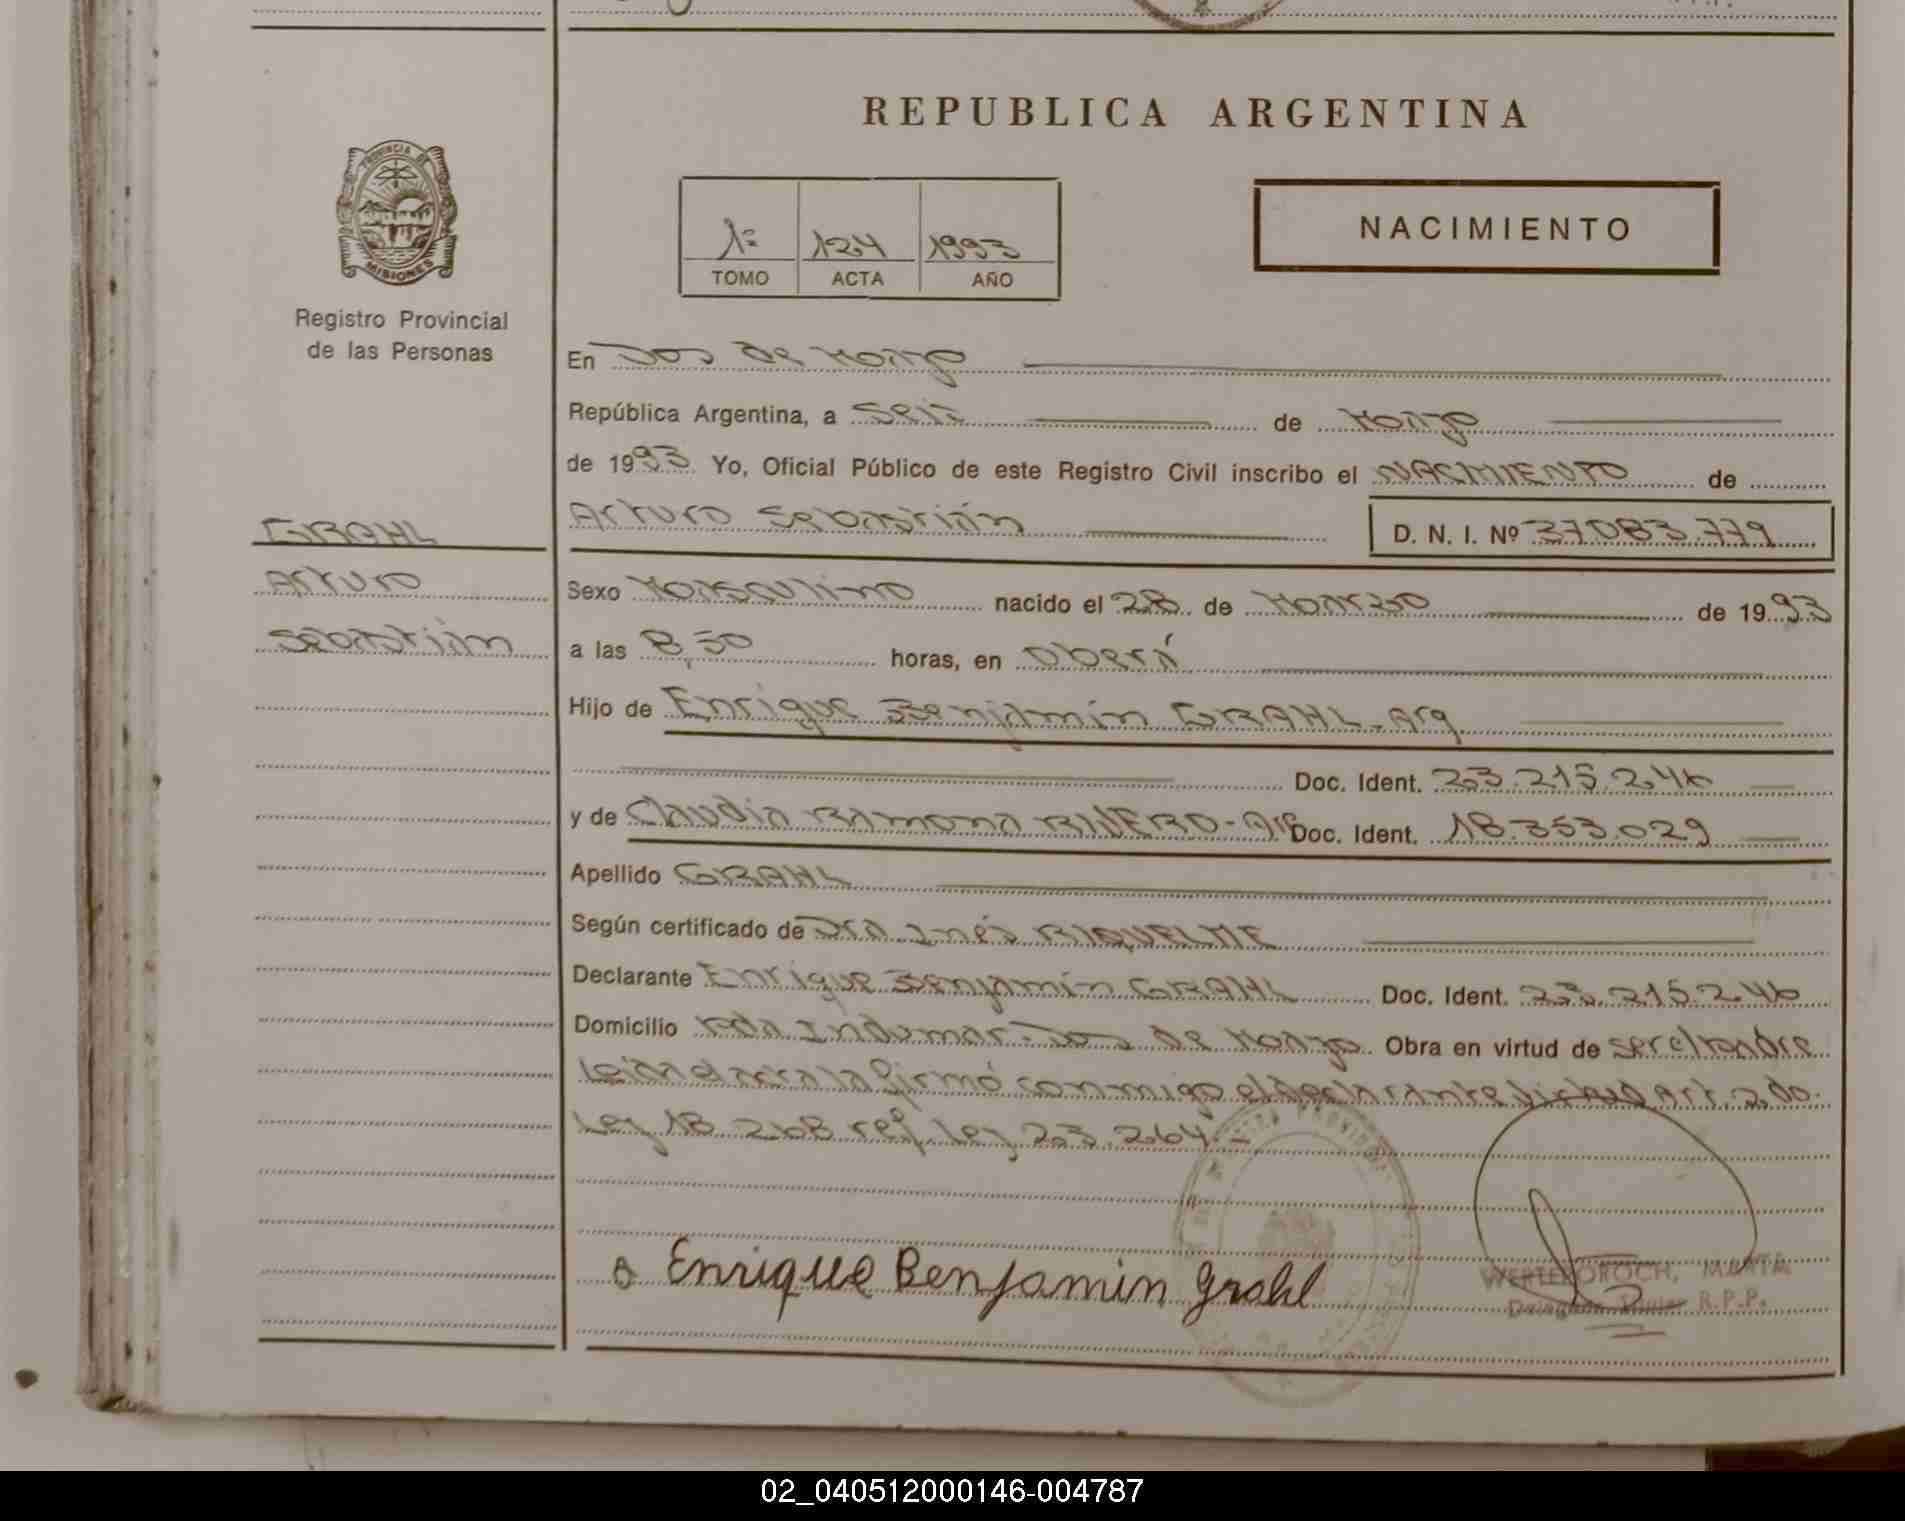 REPUBLICA ARGENTINA
PROVINCIA DE
MISIONES
Registro Provincial
de las Personas
1º 124 1993
TOMO ACTA AÑO
NACIMIENTO
En Dos de Mayo
República Argentina, a seis de Mayo
de 1993 Yo, Oficial Público de este Registro Civil inscribo el NACIMIENTO de
GRAHL
Arturo
Sebastián
Arturo Sebastián D. N. I. Nº 37.083.779
Sexo Masculino nacido el 28 de Marzo de 1993
a las 8,50 horas, en Oberá
Hijo de Enrique Benjamín GRAHL - Arg.
Doc. Ident. 23.215.246
y de Claudia Ramona RIVERO - Arg Doc. Ident. 18.353.029
Apellido GRAHL
Según certificado de Dra Inés RIQUELME
Declarante Enrique Benjamín GRAHL Doc. Ident. 23.215.246
Domicilio Indumar - Dos de Mayo Obra en virtud de ser el padre
Leida el acta la firmó conmigo el declarante Art. 2do.
Ley 18.268 ref. Ley 23.264.-
Enrique Benjamin Grahl
MARTA
R.P.P.
02_040512000146-004787